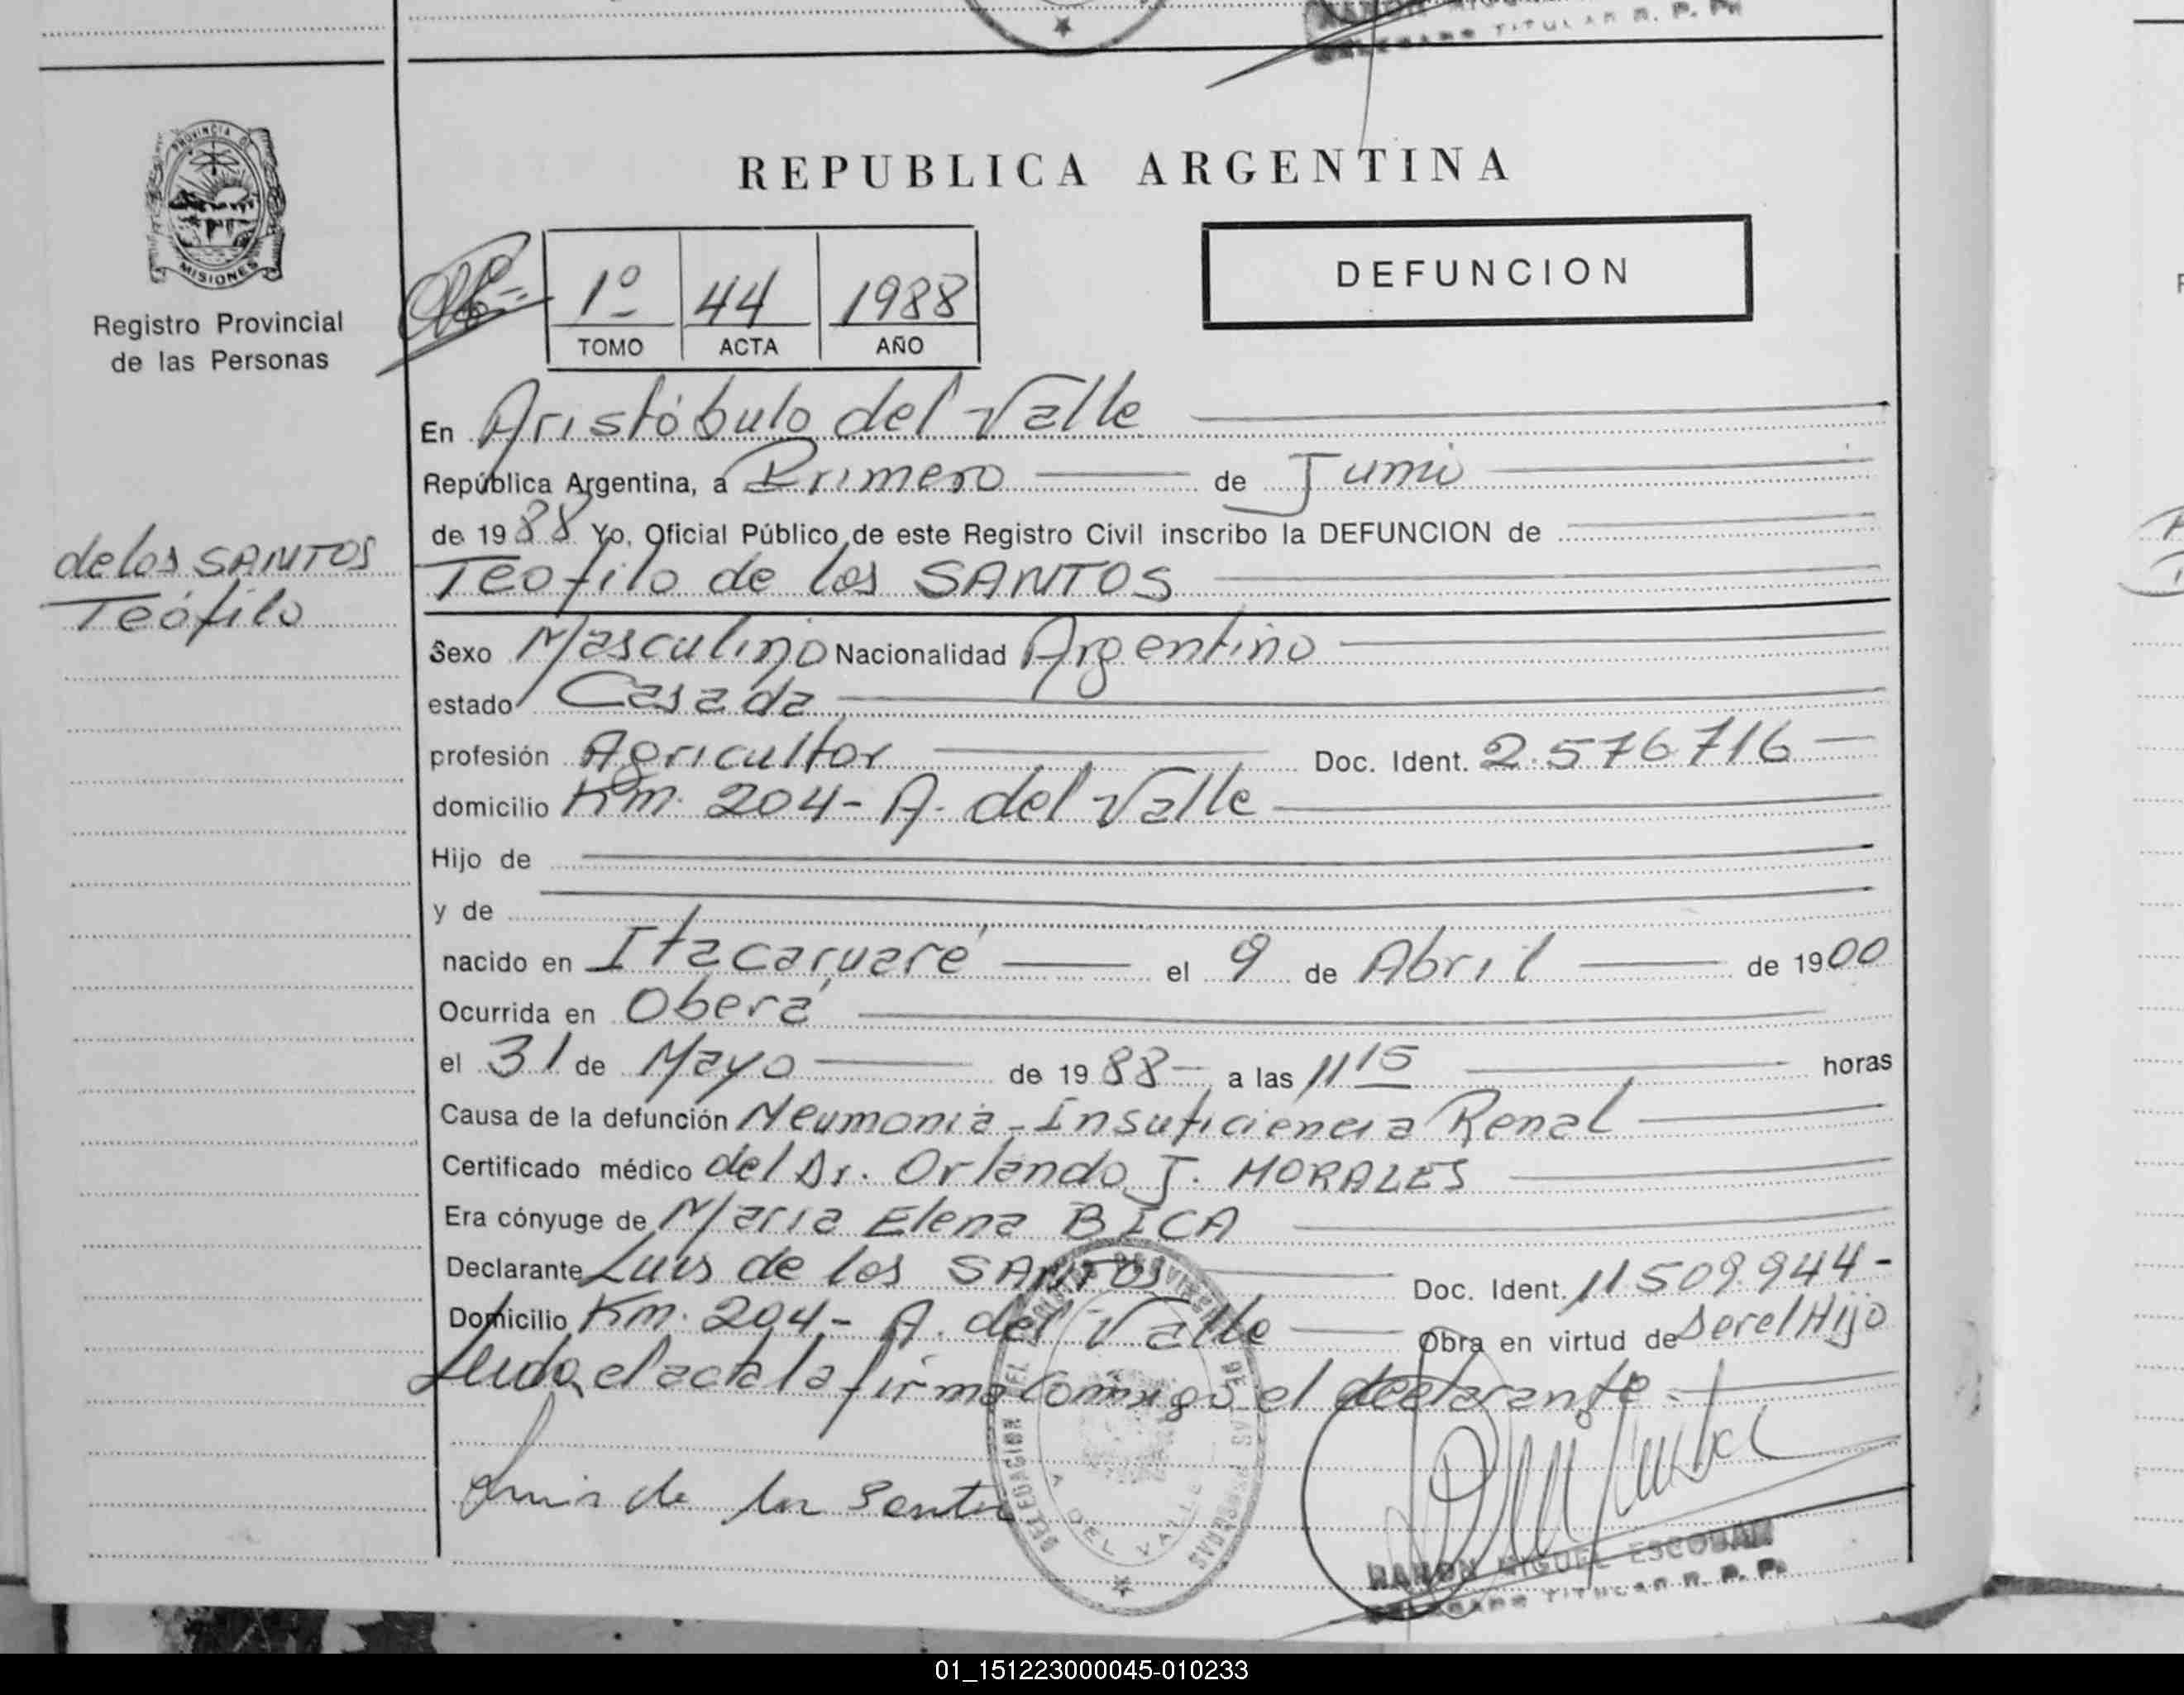 PROVINCIA DE
MISIONES
Registro Provincial
de las Personas
de los SANTOS
Teófilo
TITULAR R. P. P.
REPUBLICA ARGENTINA
1º 44 1988
TOMO ACTA AÑO
DEFUNCION
En Aristóbulo del Valle
República Argentina, a Primero de Junio
de 1988 Yo, Oficial Público de este Registro Civil inscribo la DEFUNCION de
Teofilo de los SANTOS
Sexo Masculino Nacionalidad Argentino
estado Casada
profesión Agricultor Doc. Ident. 2.576.716
domicilio Km. 204 - A. del Valle
Hijo de
y de
nacido en Itacaruaré el 9 de Abril de 1900
Ocurrida en Oberá
el 31 de Mayo de 1988 a las 11 15 horas
Causa de la defunción Neumonia - Insuficiencia Renal
Certificado médico del Dr. Orlando J. MORALES
Era cónyuge de Maria Elena BICA
Declarante Luis de los SANTOS Doc. Ident. 11509.944-
Domicilio Km. 204 - A. del Valle Obra en virtud de Ser el Hijo
Leida el acta la firma comigo el declarante
Luis de los Santos
DELEGACION A DEL VALLE
RAMON MIGUEL ESCOBAR
TITULAR R. P. P.
01_151223000045-010233